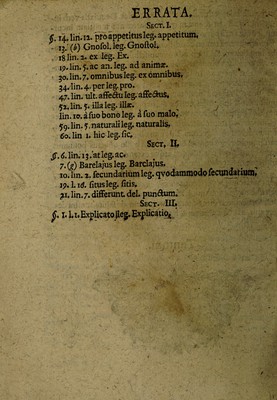 ERRATA.
SECT. I.
§. 14. lin. 12. pro appetitus leg. appetitum,
13. (b) Gnosol. leg. Gnostol.
18 lin. 2. ex leg. Ex.
19. lin. 5. ac an. leg. ad animæ.
30. lin. 7. omnibus leg. ex omnibus,
34. lin. 4. per leg. pro.
47. lin. ult. affectu leg. affectus,
52. lin. 5. illa leg. illæ.
lin. 10. á suo bono leg. á suo malo,
59. lin. 5. naturali leg. naturalis,
60. lin 1. hic leg. sic,
SECT. II.
§. 6. lin. 13. at leg. ac.
7. (g) Barelajus leg. Barclajus.
10. lin. 2. secundarium leg. qvodammodo secundarium,
19. l. 16. situs leg. sitis,
21. lin. 7. differunt. del. punctum.
SECT. III.
§. 1. l. 1. Explicato leg. Explicatio.